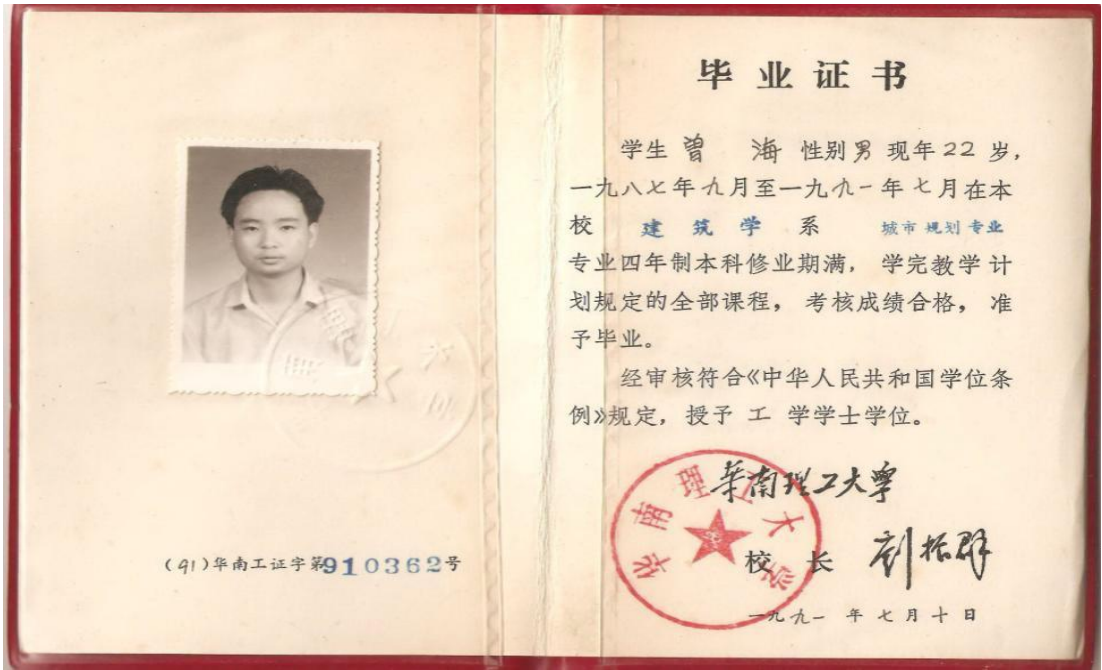 (91)华南工证字第910362号
毕业证书
学生 曾 海 性别 男 现年 22 岁，
一九八七年九月至一九九一年七月在本
校 建筑学 系 城市规划专业
专业四年制本科修业期满，学完教学计
划规定的全部课程，考核成绩合格，准
予毕业。
经审核符合《中华人民共和国学位条
例》规定，授予 工 学学士学位。
华南理工大學
华南理工大学
校 长 刘振群
一九九一 年 七 月 十 日